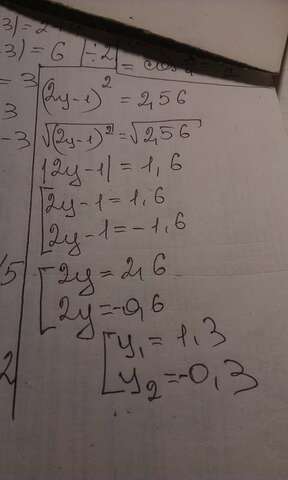 3| = 2
-3) = 6 | ÷2|
= 3
3
-3
(2y-1)² = 2,56
√(2y-1)² = √2,56
|2y-1| = 1,6
[2y-1 = 1,6
2y-1 = -1,6
[2y = 2,6
2y = -0,6
[y₁ = 1,3
y₂ = -0,3